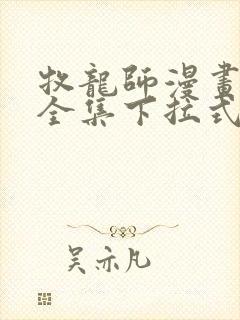 牧龍師漫畫
全集下拉式
吴亦凡